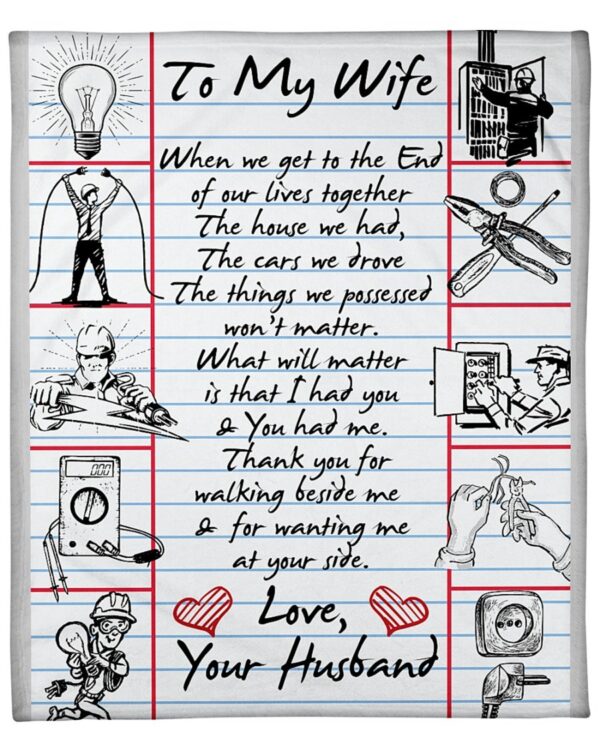 To My Wife
When we get to the End
of our lives together
The house we had,
The cars we drove
The things we possessed
won't matter.
What will matter
is that I had you
& You had me.
Thank you for
walking beside me
& for wanting me
at your side.
Love,
Your Husband
000